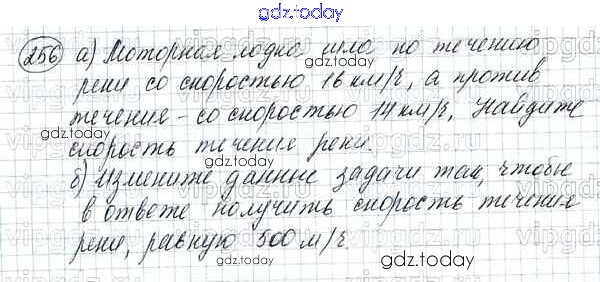 gdz.today
256 а) Моторная лодка шла по течению
реки со скоростью 16 км/ч, а против
течения - со скоростью 14 км/ч. Найдите
скорость течения реки.
б) Измените данные задачи так, чтобы
в ответе получить скорость течения
реки, равную 500 м/ч.
gdz.today
gdz.today
gdz.today
gdz.today
gdz.today
gdz.today